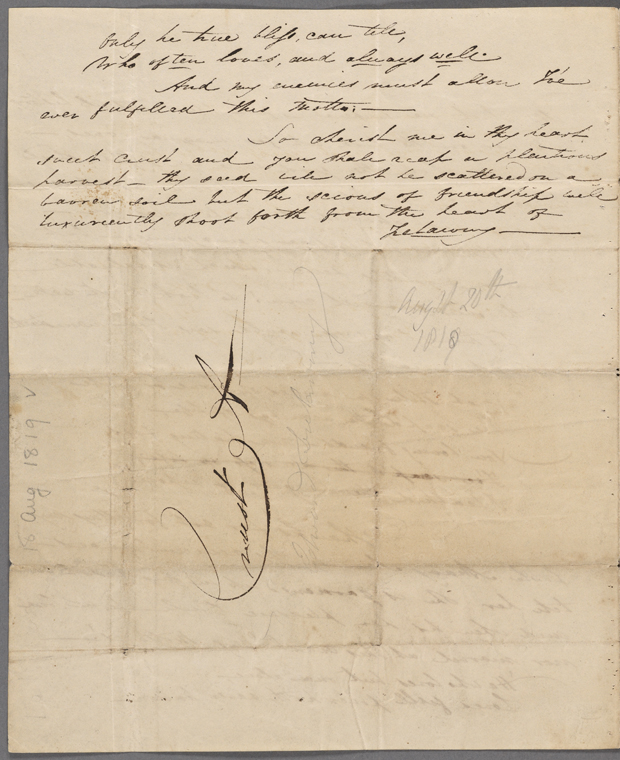 Only he true bliss, can tell,
Who often loves, and always well.
And my enemies must allow I've
ever fulfilled this motto:—
So cherish me in thy heart
sweet Crust and you shall reap a plentious
harvest — thy seed will not be scattered on a
barren soil but the scions of friendship will
luxuriently shoot forth from the heart of
Trelawny —
Augst 20th
1819
Crust
18 Aug 1819